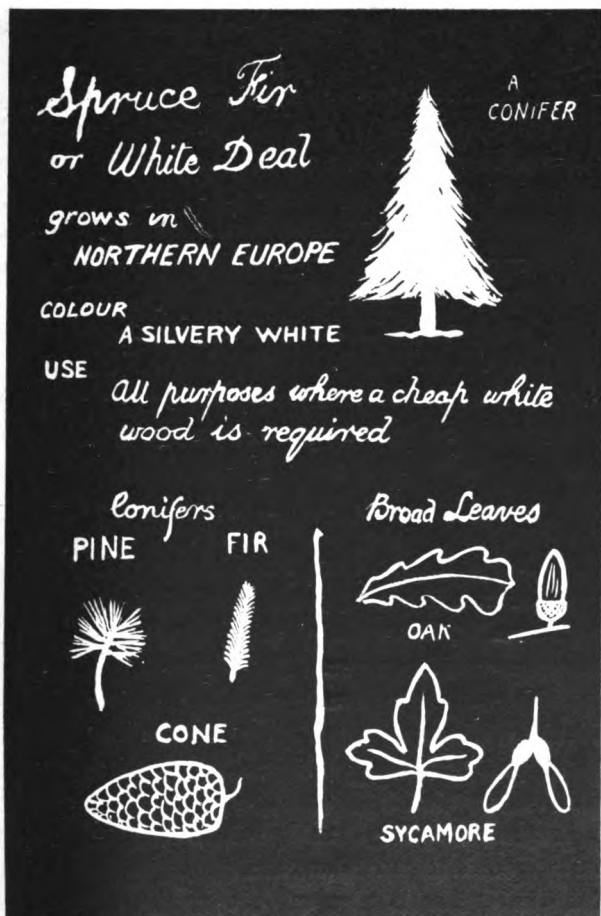 Spruce Fir
or White Deal
A
CONIFER
grows in
NORTHERN EUROPE
COLOUR
A SILVERY WHITE
USE
All purposes where a cheap white
wood is required
Conifers
PINE FIR
CONE
Broad Leaves
OAK
SYCAMORE